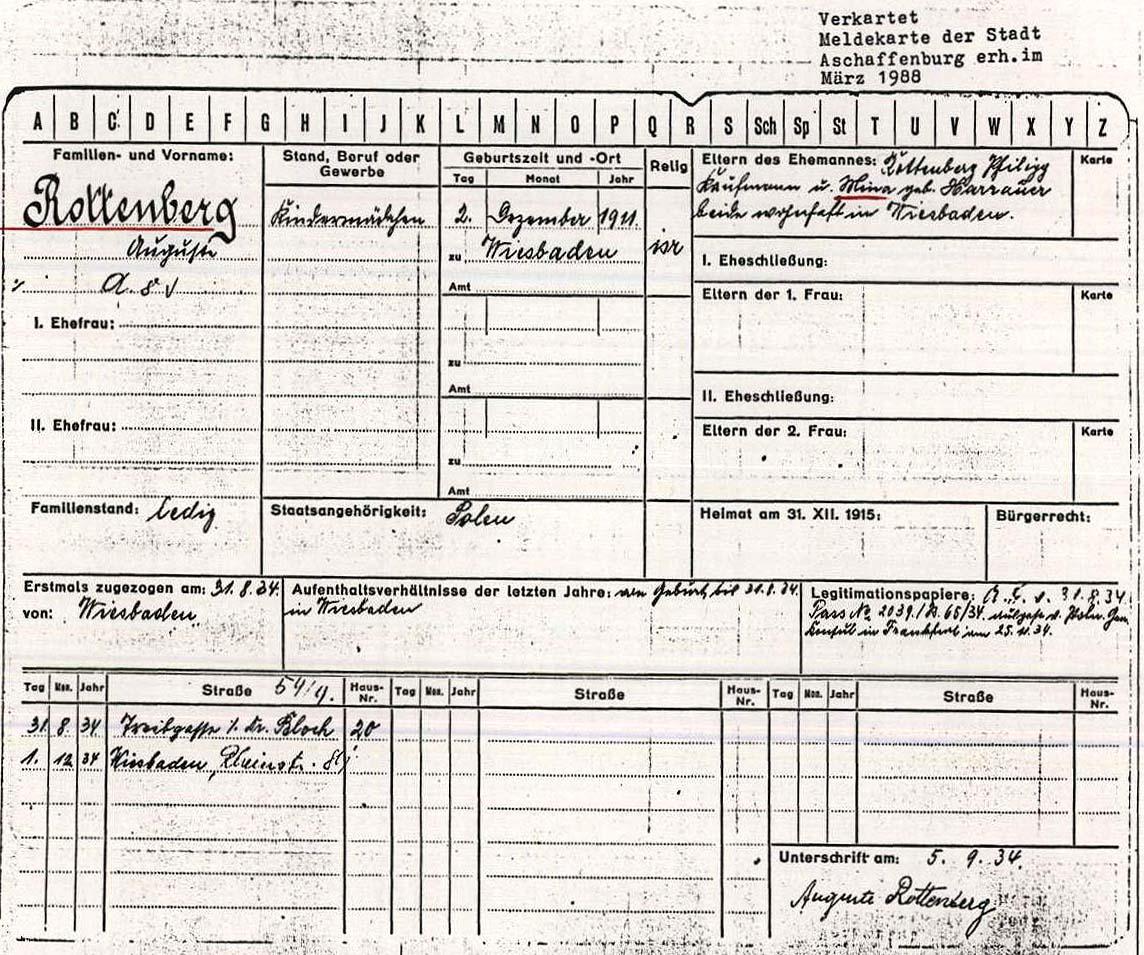 Verkartet
Meldekarte der Stadt
Aschaffenburg erh.im
März 1988
A B C D E F G H I J K L M N O P Q R S Sch Sp St T U V W X Y Z
Familien- und Vorname:
Rottenberg
Auguste
Stand, Beruf oder
Gewerbe
Kindermädchen
Geburtszeit und -Ort
Tag Monat Jahr
2. Dezember 1911.
zu Wiesbaden
Amt
zu
Amt
zu
Amt
Relig
isr
Eltern des Ehemannes: Rottenberg Philipp
Kaufmann u. Mina geb. Harrauer
beide wohnhaft in Wiesbaden.
Karte
I. Eheschließung:
Eltern der 1. Frau:
Karte
II. Eheschließung:
Eltern der 2. Frau:
Karte
I. Ehefrau:
II. Ehefrau:
Familienstand: ledig
Staatsangehörigkeit: Polen
Heimat am 31. XII. 1915:
Bürgerrecht:
Erstmals zugezogen am: 31.8.34.
von: Wiesbaden
Aufenthaltsverhältnisse der letzten Jahre: von Geburt bis 31.8.34.
in Wiesbaden
Legitimationspapiere: v. 31.8.34
Pass No 2039/ 65/34. v. Poln. Gen.
Konsul in Frankfurt am 25. 34.
Tag Mon. Jahr Straße 54/4. Haus-Nr. Tag Mon. Jahr Straße Haus-Nr. Tag Mon. Jahr Straße Haus-Nr.
31. 8. 34 Treibgasse Dr. Bloch 20
1. 12 34 Wiesbaden, Rheinstr.
Unterschrift am: 5. 9. 34.
Auguste Rottenberg